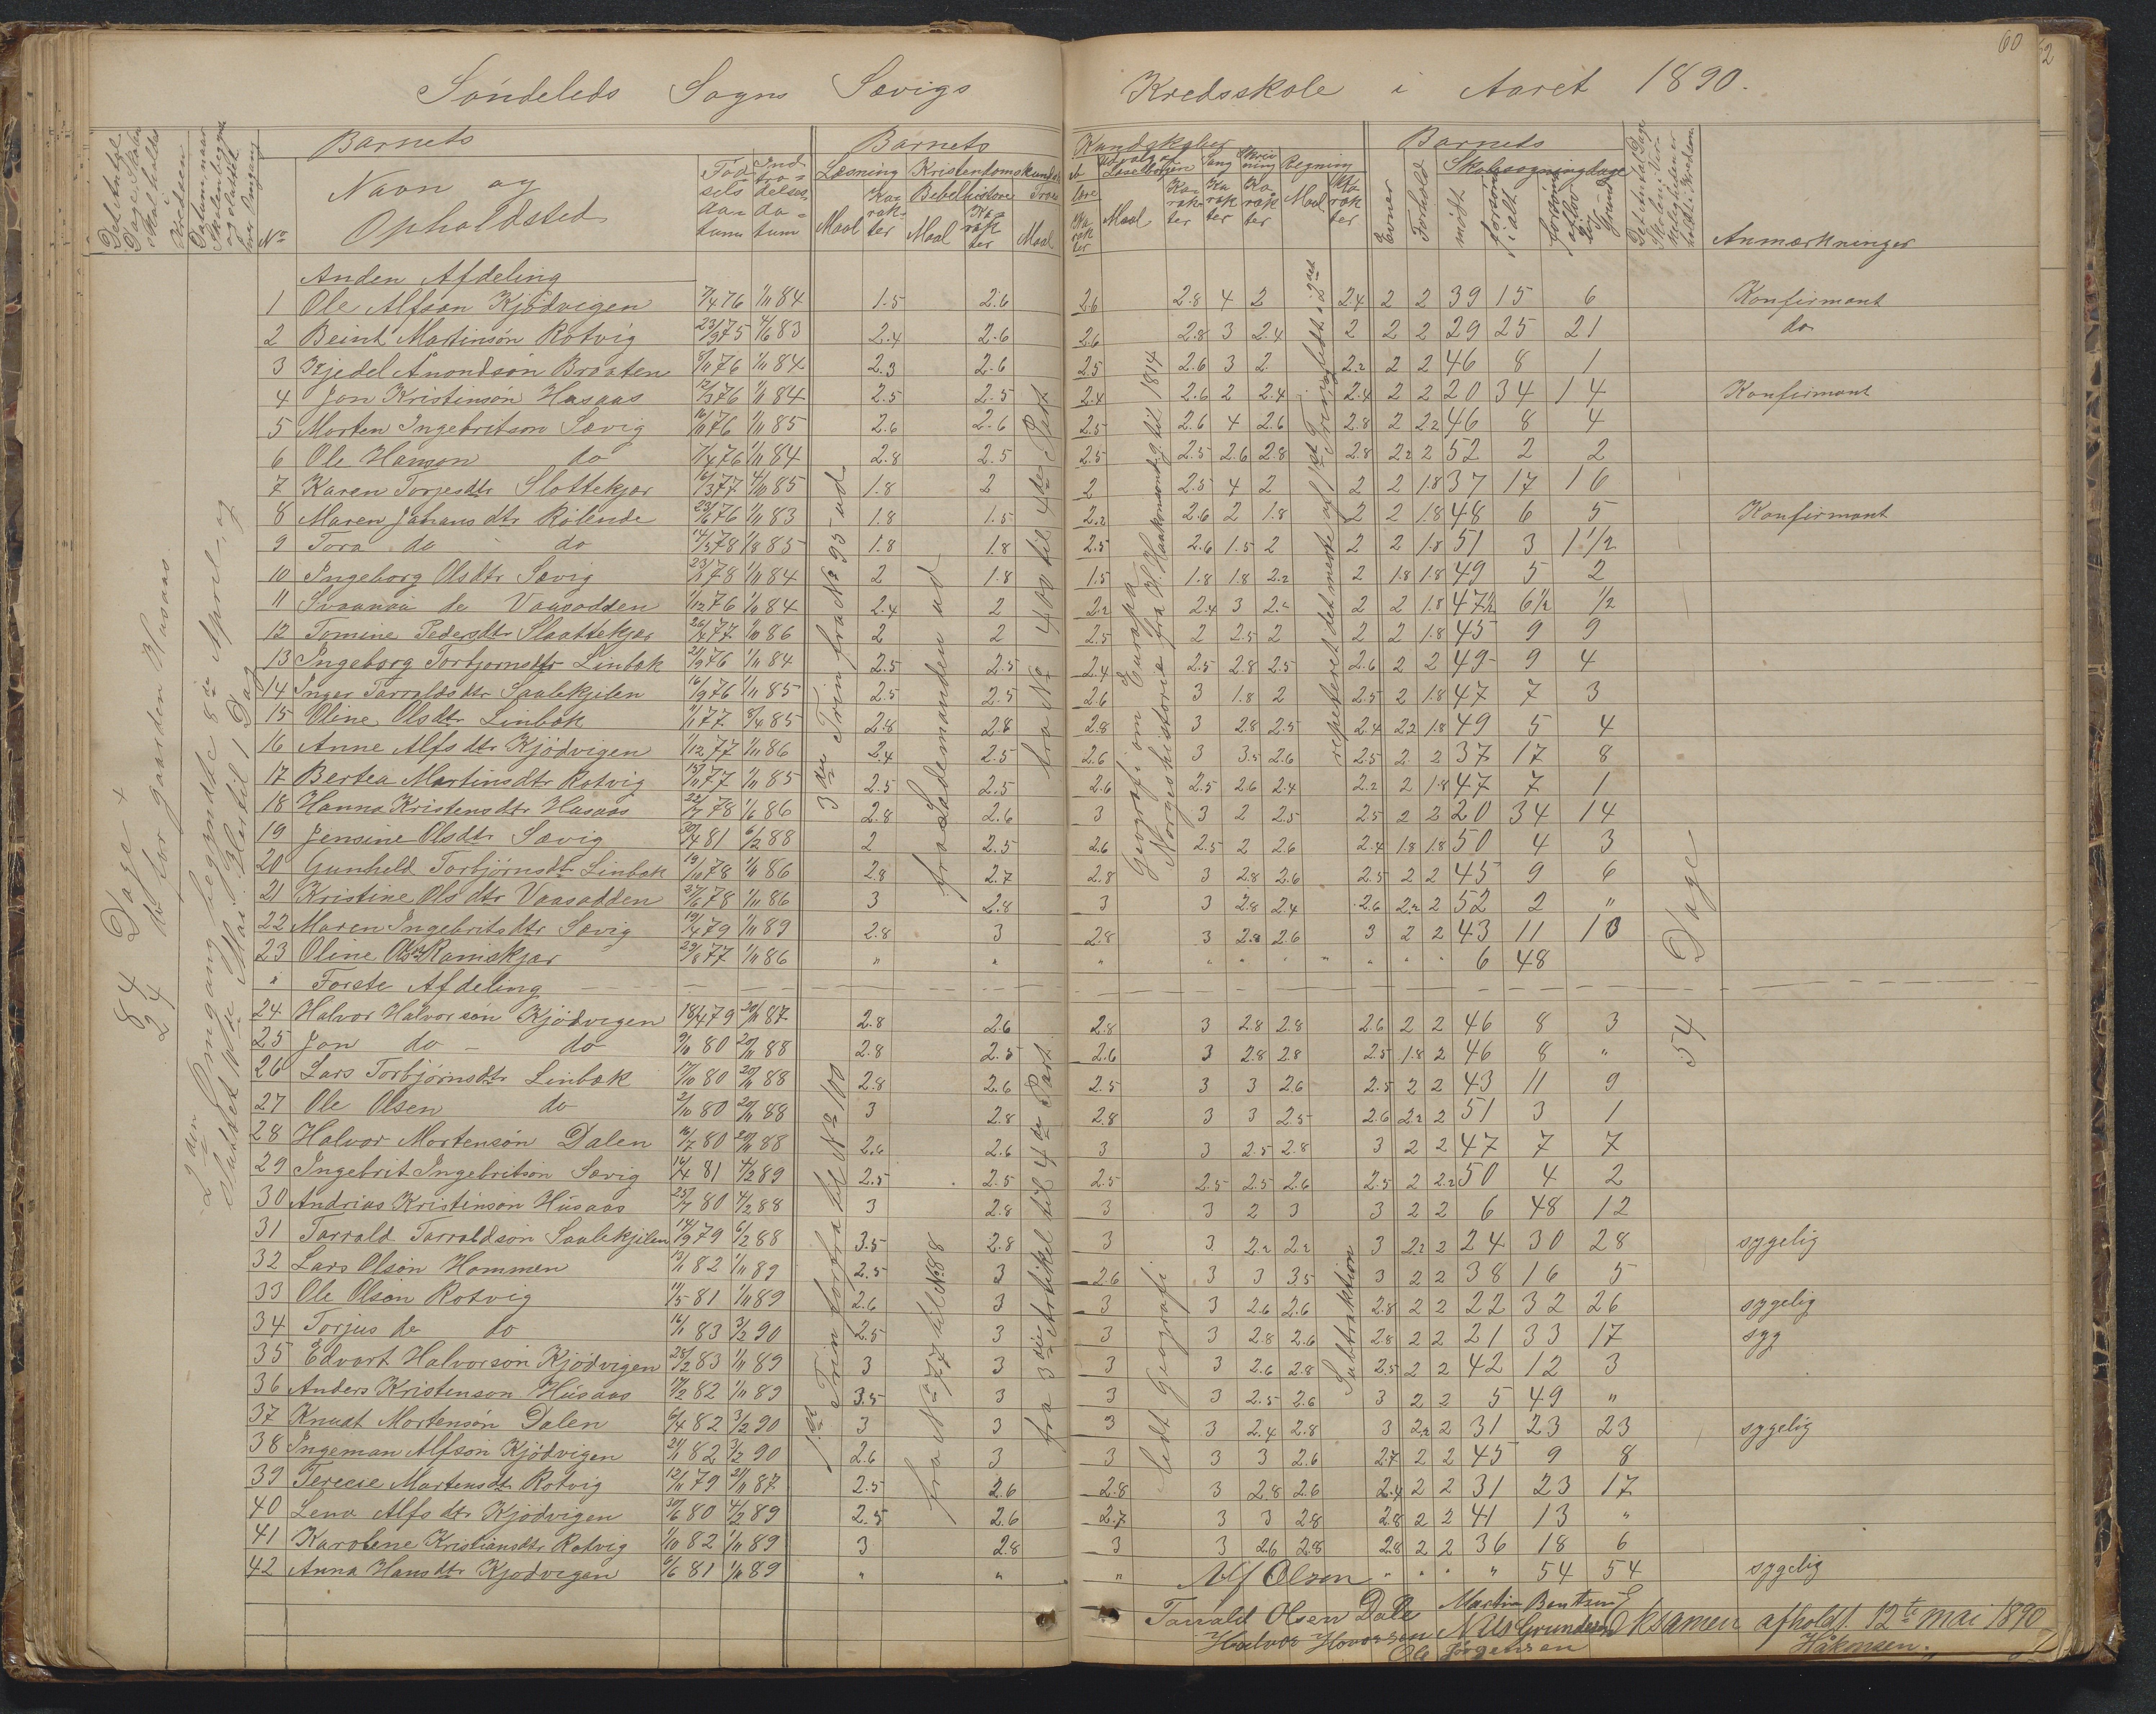 60
52
Söndeleds Sogns Sævigs Kredsskole i Aaret 1890.
Det Antal Dage Skolen skal holdes i Kredsen
Datum naar Skolen begyndte og sluttet hver Omgang
No
Barnets
Navn og Opholdsted
Födselsdatum
Indtrædelsesdatum
Barnets Kundskaber
Læsning Kristendomskundskab
Maal Karakter
Bibelhistorie
Maal Karakter
Maal
Karakter
Udvalg af Læsebogen
Maal Karakter
Sang Karakter
Skrivning Karakter
Regning
Maal Karakter
Barnets
Evner
Forhold
Skolesögningsdage
mödt
forsömt i alt
forsömt af lovlig Grund
Anmærkninger
84 Dage +
24 do for gaarden Husaas.
2den Omgang begyndte 8de April, og sluttet 10de Mai.
Anden Afdeling
1 Ole Alfsön Kjödvigen 7/4 76 1/11 84 1.5 2.6 2.6 2.8 4 2 2.4 2 2 39 15 6 Konfirmant
2 Beint Martinsön Rotvig 23/9 75 4/6 83 2.4 2.6 2.6 2.8 3 2.4 2 2 2 29 25 21 do
3 Kjedel Anondsön Braaten 8/11 76 1/11 84 2.3 2.6 2.5 2.6 3 2 2.2 2 2 46 8 1
4 Jon Kristinsön Husaas 12/3 76 1/11 84 2.5 2.5 2.4 2.6 2 2.4 2.4 2 2 20 34 14 Konfirmant
5 Morten Ingebritson Sævig 16/11 76 1/11 85 2.6 2.6 2.5 2.6 4 2.6 2.8 2 2.2 46 8 4
6 Ole Hanson do 7/4 76 1/11 84 2.8 2.5 2.5 2.5 2.6 2.8 2.8 2.2 2 52 2 2
7 Karen Torjesdtr Slottekjær 16/3 77 4/10 85 1.8 2 2 2.5 4 2 2 2 1.8 37 17 16
8 Maren Johansdtr Rölende 23/6 76 1/11 83 1.8 1.5 2.2 2.6 2 1.8 2 2 1.8 48 6 5 Konfirmant
9 Tora do do 14/3 78 1/8 85 1.8 1.8 2.5 2.6 1.5 2 2 2 1.8 51 3 1 1/2
10 Ingeborg Olsdtr Sævig 23/1 78 1/11 84 2 1.8 1.5 1.8 1.8 2.2 2 1.8 1.8 49 5 2
11 Svaanaa do Vaasodden 1/12 76 1/11 84 2.4 2 2.2 2.4 3 2.2 2 2 1.8 47 1/2 6 1/2 1/2
12 Tomine Pedersdtr Slaattekjær 26/4 77 1/10 86 2 2 2.5 2 2.5 2 2 2 1.8 45 9 9
13 Ingeborg Torbjornsdtr Linbæk 21/9 76 1/11 84 2.5 2.5 2.4 2.5 2.8 2.5 2.6 2 2 49 9 4
14 Inger Tarraldsdtr Saalekjilen 16/9 76 1/11 85 2.5 2.5 2.6 3 1.8 2 2.5 2 1.8 47 7 3
15 Oline Olsdtr Linbæk 9/1 77 8/4 85 2.8 2.6 2.8 3 2.8 2.5 2.4 2.2 1.8 49 5 4
16 Anne Alfsdtr Kjödvigen 1/12 77 1/11 86 2.4 2.5 2.6 3 3.5 2.6 2.5 2 2 37 17 8
17 Bertea Martinsdtr Rotvig 15/11 77 1/11 85 2.5 2.5 2.6 2.5 2.6 2.4 2.2 2 1.8 47 7 1
18 Hanna Kristensdtr Husaas 22/7 78 1/6 86 2.8 2.6 3 3 2 2.5 2.5 2 2 20 34 14
19 Jensine Olsdtr Sævig 30/4 81 6/2 88 2 2.5 2.6 2.5 2 2.6 2.4 1.8 1.8 50 4 3
20 Gunheld Torbjörnsdtr Linbæk 19/10 78 1/11 86 2.8 2.7 2.8 3 2.8 2.6 2.5 2 2 45 9 6
21 Kristine Olsdtr Vaasodden 27/6 78 1/11 86 3 2.8 3 3 2.8 2.4 2.6 2.2 2 52 2 "
22 Maren Ingebritsdtr Sævig 19/4 79 1/11 89 2.8 3 2.8 3 2.8 2.6 3 2 2 43 11 10
23 Oline Olsdtr Ramskjær 29/8 77 1/11 86 " " " " " " " " " " 6 48
" Forste Afdeling
24 Halvor Halvorsön Kjödvigen 18/4 79 20/11 87 2.8 2.6 2.8 3 2.8 2.8 2.6 2 2 46 8 3
25 Jon do - do 9/10 80 20/11 88 2.8 2.5 2.6 3 2.8 2.8 2.5 1.8 2 46 8 "
26 Lars Torbjörnsdtr Linbæk 17/10 80 20/11 88 2.8 2.6 2.5 3 3 2.6 2.5 2 2 43 11 9
27 Ole Olsen do 2/10 80 20/11 88 3 2.8 2.8 3 3 2.5 2.6 2.2 2 51 3 1
28 Halvor Mortensön Dalen 16/7 80 20/11 88 2.6 2.6 3 3 2.5 2.8 3 2 2 47 7 7
29 Ingebrit Ingebritson Sævig 14/4 81 4/2 89 2.5 2.5 2.5 2.5 2.5 2.6 2.5 2 2.2 50 4 2
30 Andrias Kristinsön Husaas 25/7 80 4/2 88 3 2.8 3 3 2 3 3 2 2 6 48 12
31 Tarrald Tarraldsön Saalekjilen 14/9 79 6/2 88 3.5 2.8 3 3 2.2 2.2 3 2.2 2 24 30 28 sygelig
32 Lars Olsön Hommen 13/1 82 1/11 89 2.5 3 2.6 3 3 3.5 3 2 2 38 16 5
33 Ole Olsön Rotvig 11/5 81 1/11 89 2.6 3 3 3 2.6 2.6 2.8 2 2 22 32 26 sygelig
34 Torjus do do 16/1 83 3/2 90 2.5 3 3 3 2.8 2.6 2.8 2 2 21 33 17 syg
35 Edvart Halvorsön Kjödvigen 28/2 83 1/11 89 3 3 3 3 2.6 2.8 2.5 2 2 42 12 3
36 Anders Kristenson Husaas 17/2 82 1/11 89 3.5 3 3 3 2.5 2.6 3 2 2 5 49 "
37 Knudt Mortensön Dalen 6/4 82 3/2 90 3 3 3 3 2.4 2.8 3 2.2 2 31 23 23 sygelig
38 Ingeman Alfson Kjödvigen 21/1 82 3/2 90 2.6 3 3 3 3 2.6 2.7 2 2 45 9 8
39 Tereese Martensdtr Rotvig 12/11 79 21/11 87 2.5 2.6 2.8 3 2.8 2.6 2.4 2 2 31 23 17
40 Lena Alfsdtr Kjödvigen 30/6 80 4/2 89 2.5 2.6 2.7 3 3 2.8 2.8 2 2 41 13 "
41 Karolene Kristiansdtr Rotvig 1/10 82 1/11 89 3 2.8 3 3 2.6 2.8 2.8 2 2 36 18 6
42 Anna Hansdtr Kjodvigen 6/6 81 1/11 89 " " " " " " " 54 54 sygelig
3die Trin fra No 95 - ud
fra Lademanden ud
fra No 400 til 4de Part
Geografi om Europa
Norgeshistorie fra H. Haakonsond. til 1814
repeteret det meste af 1ste Trin
54 Dage
1ste Trin forfra til No 100
fra No 77 til No 88
fra 3die Artikel til 4de Part.
lidt Geografi
Subtraktion
Alf Olsen
Tarrald Olsen Dale Martin Bentsen
Halvor Nils Grundesen
Ole Jörgensen
Eksamen afholdt 12te mai 1890
Håkonsen.